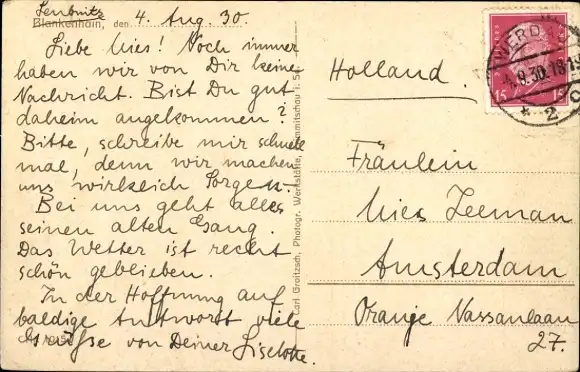 Leubnitz
Blankenhain, den 4. Aug. 30.
Liebe Mies! Noch immer
haben wir von Dir keine
Nachricht. Bist Du gut
daheim angekommen?
Bitte, schreibe mir schnell
mal, denn wir machen
uns wirklich Sorgen.
Bei uns geht alles
seinen alten Gang.
Das Wetter ist recht
schön geblieben.
In der Hoffnung auf
baldige Antwort viele
Grüsse von Deiner Liselotte.
Carl Groitzsch, Photogr. Werkstätte, Crimmitschau i. Sa.
Holland.
Fräulein
Mies Zeeman
Amsterdam
Oranje Nassaulaan
27.
WERDAU
4.8.30.18-19
* 2 c
15 15